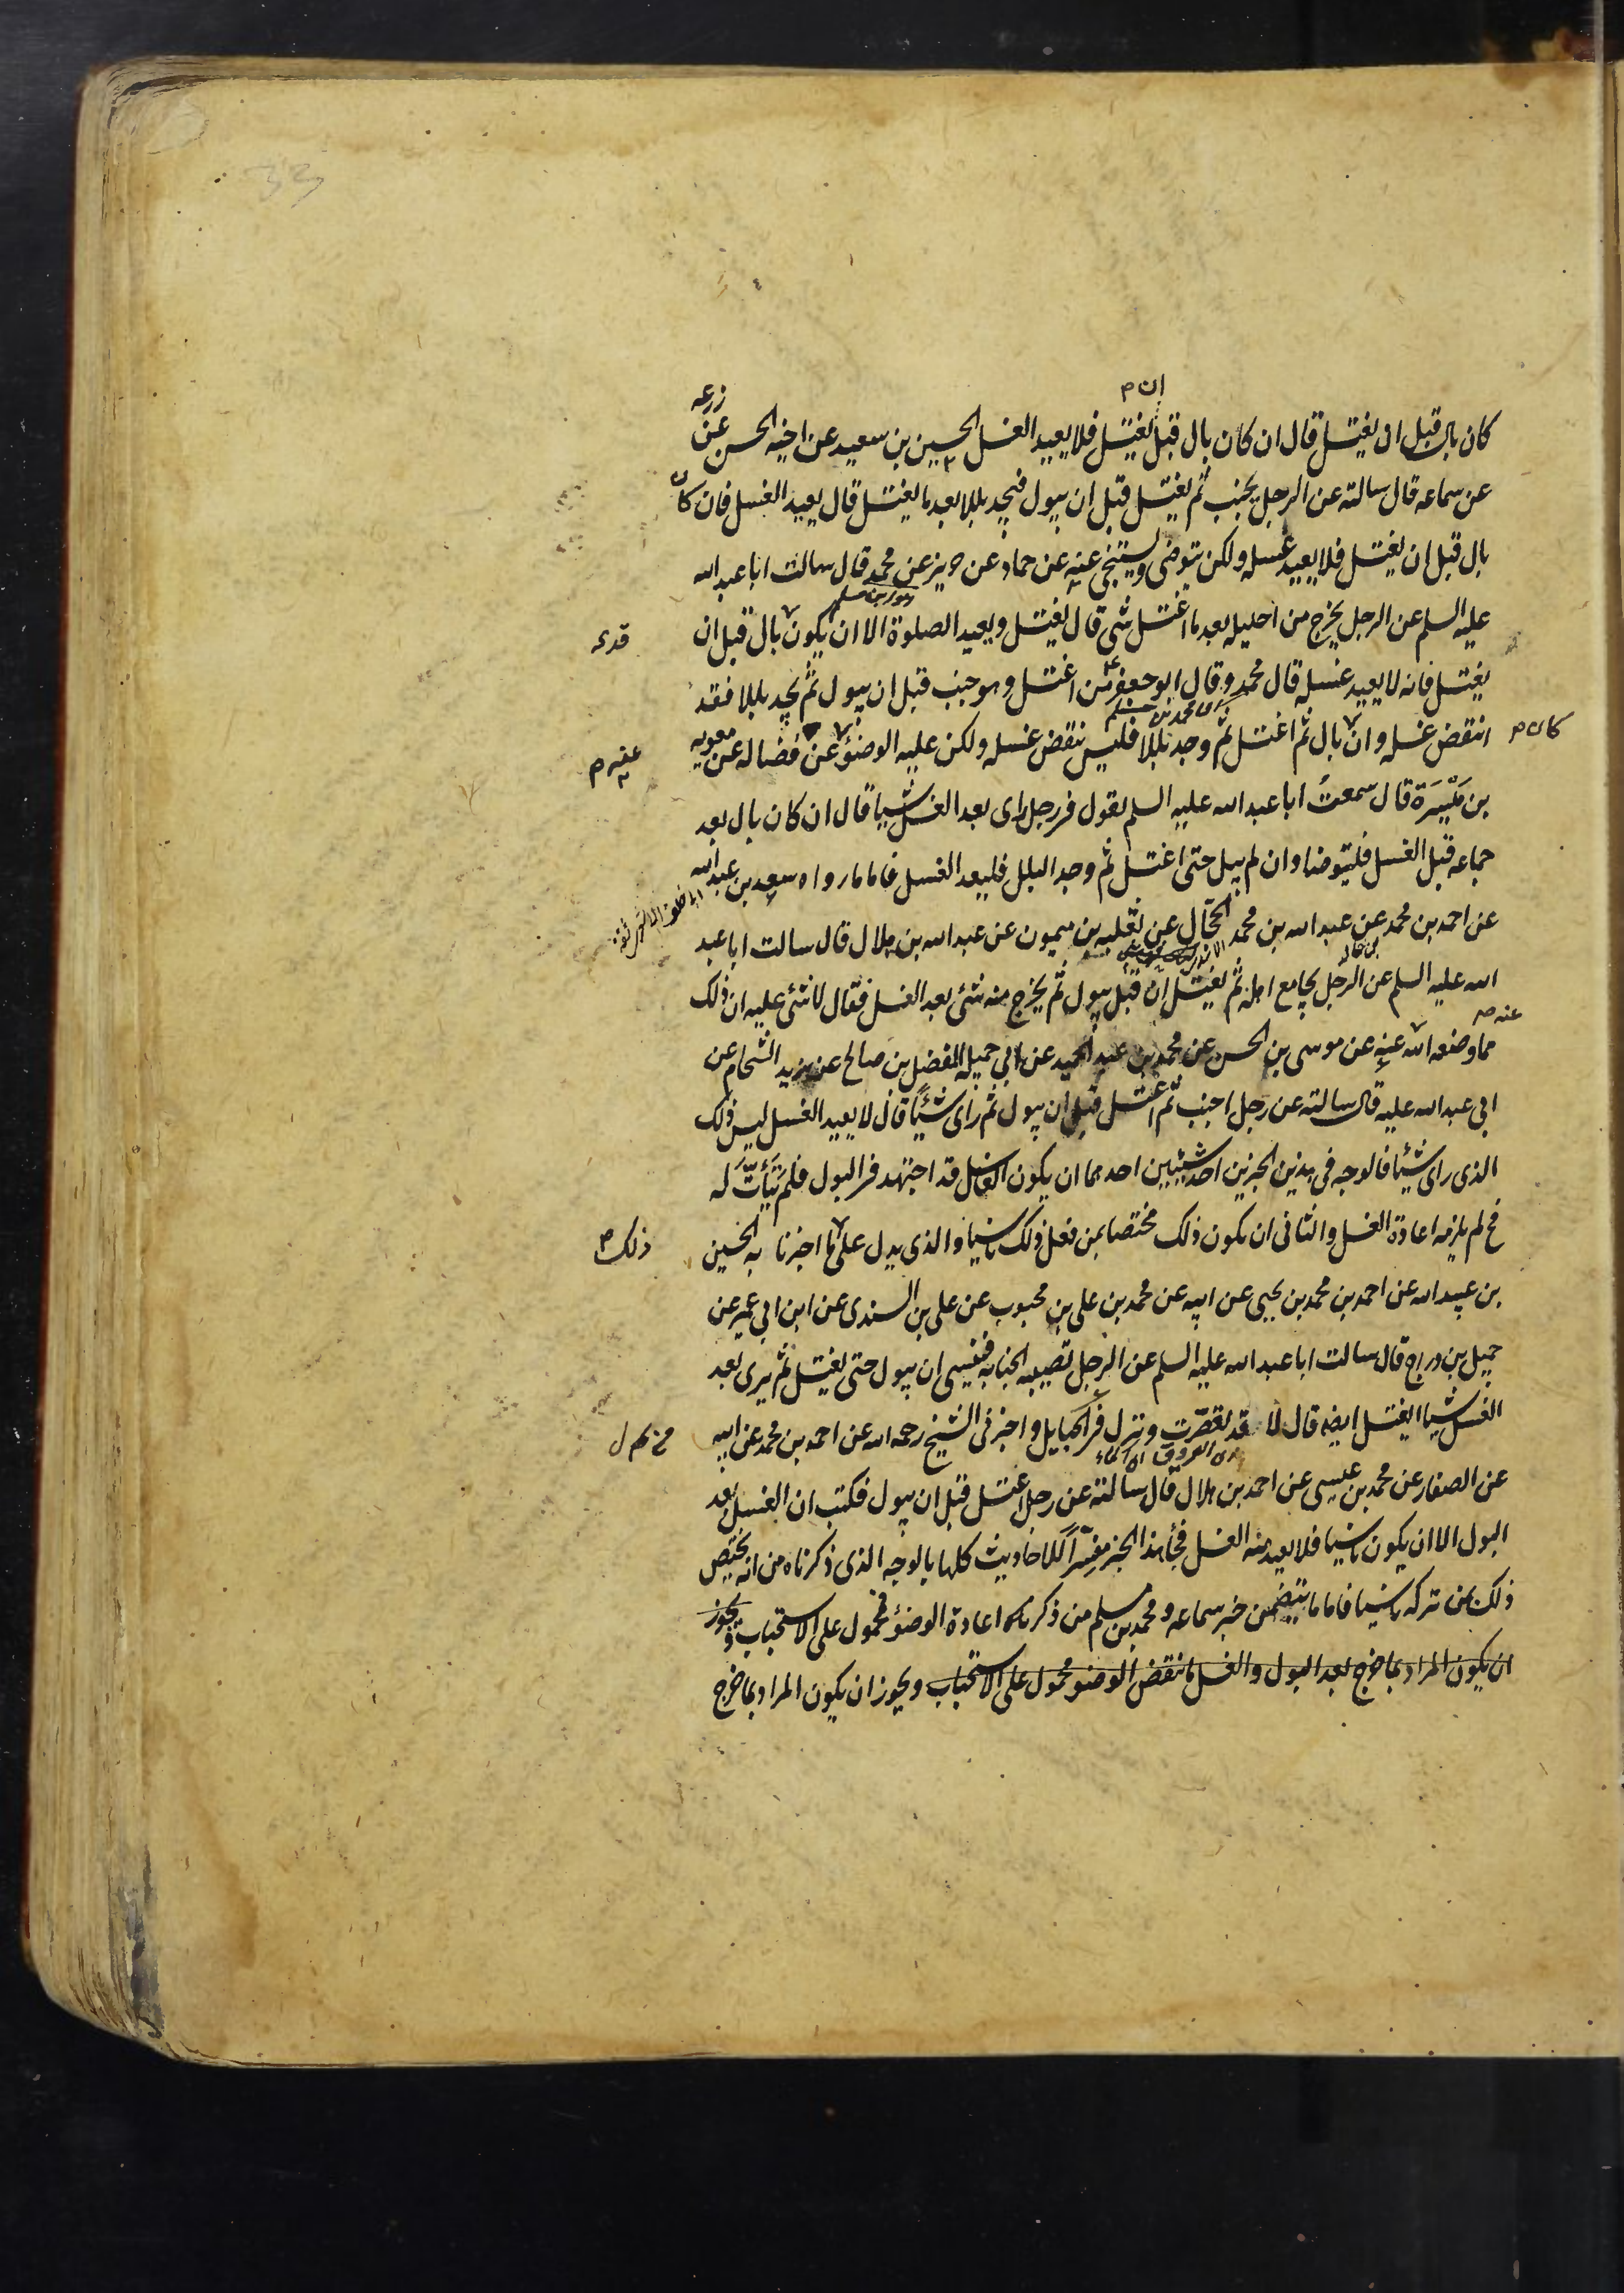 ان م
زرعه
كان بال قبل ان يغتسل قال ان كان بال قبل يغتسل فلا يعيد الغسل الحسين بن سعيد عن اخيه الحسن عن
عن سماعه قال سالته عن الرجل يجنب ثم يغتسل قبل ان يبول فيجد بللا بعد ما يغتسل قال يعيد الغسل فان كان
بال قبل ان يغتسل فلا يعيد غسله ولكن يتوضى ويستنجى عنه عن حماد عن حريز عن محمد قال سالت ابا عبد الله
هو ابن مسلم
عليه السلم عن الرجل يخرج من احليله بعد ما اغتسل شى قال يغتسل ويعيد الصلوة الا ان يكون بال قبل ان
يغتسل فانه لا يعيد غسله قال محمد وقال ابو جعفر ع من اغتسل وهو جنب قبل ان يبول ثم يجد بللا فقد
انتقض غسله وان بال ثم اغتسل ثم وجد بللا فليس ينقض غسله ولكن عليه الوضوء عن فضاله عن معويه
كان م
عنه م
بن مَيْسَرَة قال سمعتُ ابا عبد الله عليه السلم يقول فى رجل راى بعد الغسل شيا قال ان كان بال بعد
جماعه قبل الغسل فليتوضا وان لم يبل حتى اغتسل ثم وجد البلل فليعد الغسل فاما ما رواه سعد بن عبد الله
عن احمد بن محمد عن عبد الله بن محمد الحجّال عن ثعلبه بن ميمون عن عبد الله بن هلال قال سالت ابا عبد
الله عليه السلم عن الرجل يجامع اهله ثم يغتسل ان قبل يبول ثم يخرج منه شئ بعد الغسل فقال لا شئ عليه ان ذلك
عنه صه
مما وضعه الله عنه عن موسى بن الحسن عن محمد بن عبد الحميد عن ابى جميله المفضل بن صالح عن يزيد الشحام عن
ابى عبد الله عليه قال سالته عن رجل اجنب ثم اغتسل قبل ان يبول ثم راى شيئًا قال لا يعيد الغسل ليس ذلك
الذى راى شيئا فالوجه فى هذين الخبرين احد شيئين احدهما ان يكون الغاسل قد اجتهد فى البول فلم يَتَأَتَّ له
فح لم يلزمه اعادة الغسل والثانى ان يكون ذلك مختصا بمن فعل ذلك ناسيا والذى يدل على ما اخبرنا به الحسين
ذلك م
بن عبيد الله عن احمد بن محمد بن يحيى عن ابيه عن محمد بن على بن محبوب عن على بن السندى عن ابن ابى عمير عن
جميل بن دراج قال سالت ابا عبد الله عليه السلم عن الرجل تصيبه الجنابه فينسى ان يبول حتى يغتسل ثم يرى بعد
الغسل شيا ايغتسل ايضا قال لا قد تعصّرت ونزل فى الحبايل واخبرنى الشيخ رحمه الله عن احمد بن محمد عن ابيه
عن الصفار عن محمد بن عيسى عن احمد بن هلال قال سالته عن رجل اغتسل قبل ان يبول فكتب ان الغسل بعد
البول الا ان يكون ناسيا فلا يعيد منه الغسل فجأ هذا الخبر مفسِّراً للاحاديث كلها بالوجه الذى ذكرناه من انه يختص
ذلك بمن تركه ناسيا فاما ما يتضمن خبر سماعه ومحمد بن مسلم من ذكر اعادة الوضوء فمحمول على الاستحباب ويجوز
ان يكون المراد بما خرج بعد البول والغسل ما ينقض الوضو محمول على الاستحباب ويجوز ان يكون المراد بما خرج